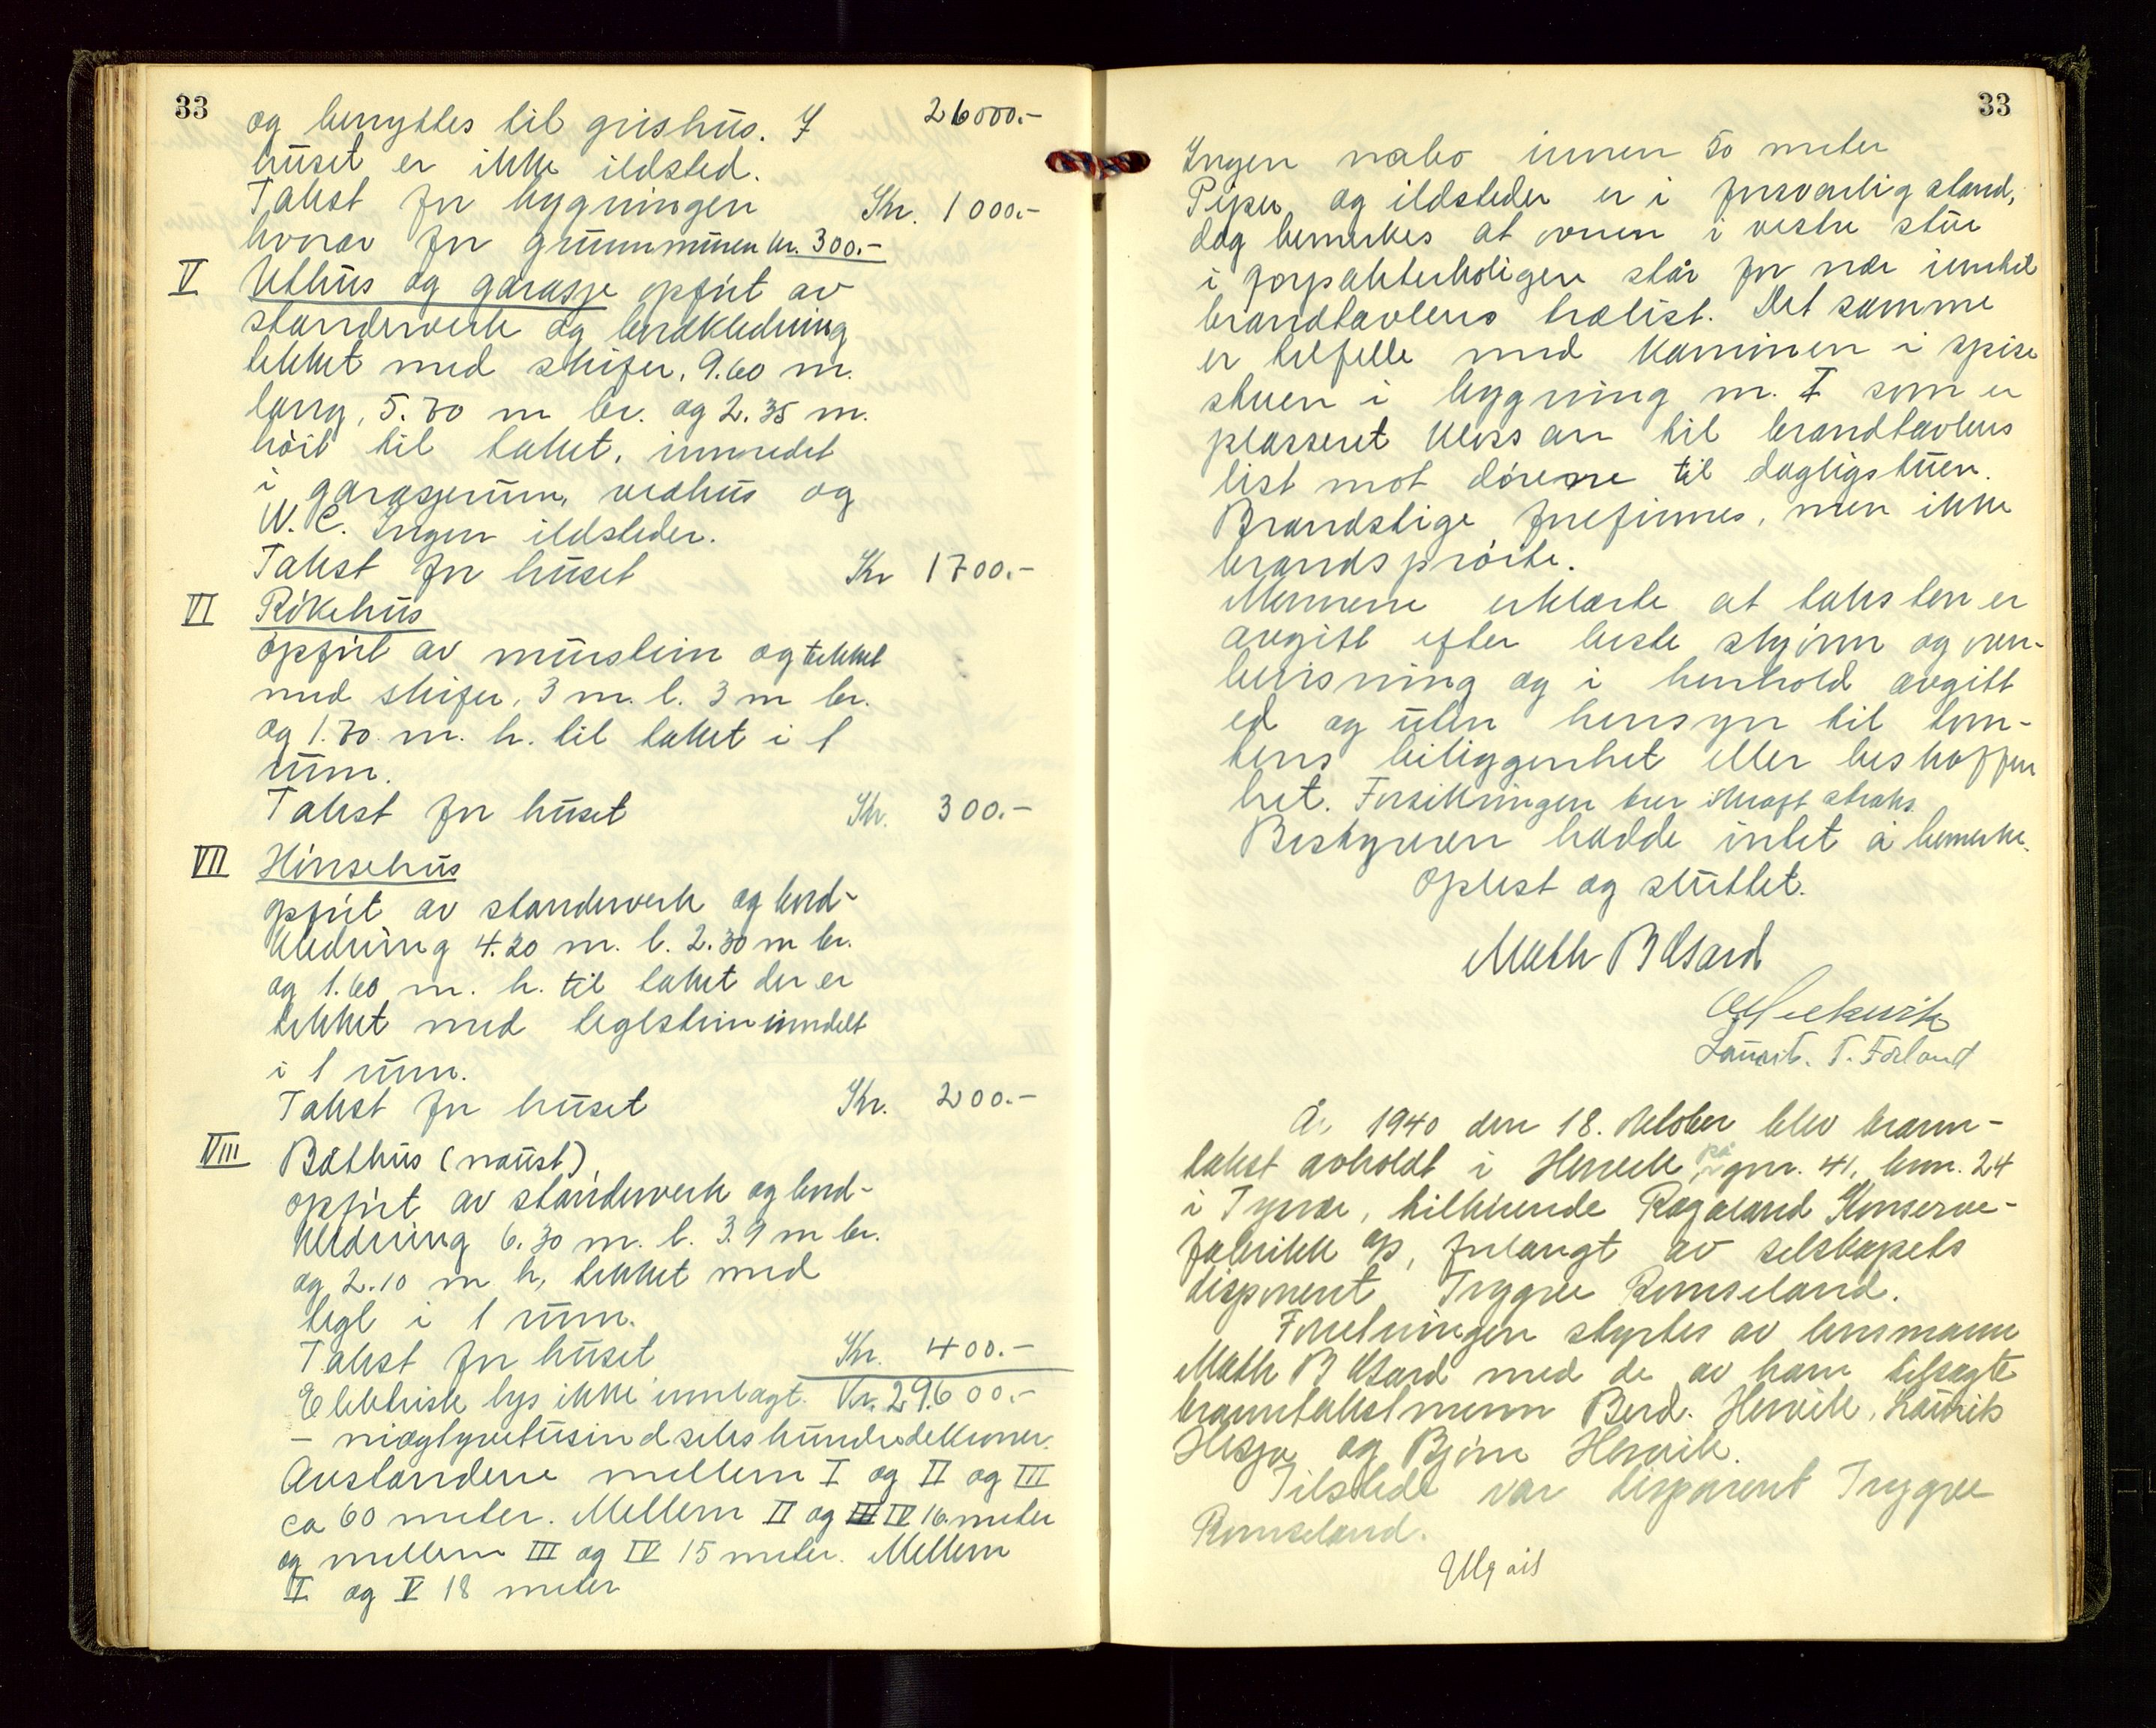 33
og benyttes til grishus. I 26000.-
huset er ikke ildsted.
Takst for bygningen Kr. 1000.-
hvorav for grunnmuren kr. 300.-
V Uthus og garasje opført av
standerverk og bordkledning
tekket med skifer, 9.60 m.
lang, 5.70 m br. og 2.35 m.
høit til taket, innredet
i garasjerum, vedhus og
W.C. Ingen ildsteder.
Takst for huset Kr 1700.-
VI Røkehus
opført av murstein og tekket
med skifer, 3 m. l. 3 m br.
og 1.70 m. h. til taket i 1
rum.
Takst for huset Kr. 300.-
VII Hønsehus
opført av standerverk og bord-
kledning 4.20 m. l. 2.30 m br.
og 1.60 m. h. til taket der er
tekket med teglstein inndelt
i 1 rum.
Takst for huset Kr. 200.-
VIII Båthus (naust),
opført av standerverk og bord-
kledning 6.30 m. l. 3.9 m br.
og 2.10 m h, tekket med
tegl i 1 rum.
Takst for huset Kr. 400.-
Elektrisk lys ikke innlagt. Kr. 29600.-
- niogtyvetusind sekshundrede kroner.
Avstandene mellem I og II og III
ca 60 meter. Mellem II og III IV 16 meter
og mellem III og IV 15 meter. Mellem
I og V 18 meter
33
Ingen nabo innen 50 meter
Piper og ildsteder er i forsvarlig stand,
dog bemerkes at ovnen i vestre stue
i forpakterboligen står for nær inntil
brandtavlens trelist. Det samme
er tilfelle med kaminen i spise
stuen i bygning nr. I som er
plasseret kloss an til brandtavlens
list mot dørene til dagligstuen.
Brandstige forefinnes, men ikke
brandsprøite.
Mennene erklærte at taksten er
avgitt efter beste skjønn og over-
bevisning og i henhold avgitt
ed og uten hensyn til tom-
tens beliggenhet eller beskaffen
het. Forsikringen trer i kraft straks.
Bestyreren hadde intet å bemerke.
Oplest og sluttet.
Math B Østbø
Laurit. T. Førland
År 1940 den 18. oktober blev brann-
takst avholdt i Hervik på gnr. 41, bnr. 24
i Tysvær, tilhørende Rogaland Konserve-
fabrikk A/S, forlangt av selskapets
disponent Trygve Romseland.
Forretningen styrtes av lensmann
med de av ham tilsagte
branntakstmenn Berd. Hervik, Laurits
Hesjø og Bjørn Hervik.
Tilstede var disponent Trygve
Romseland.